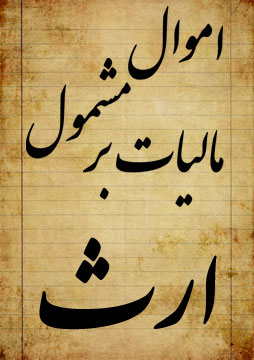 اموال
مشمول
مالیات بر
ارث